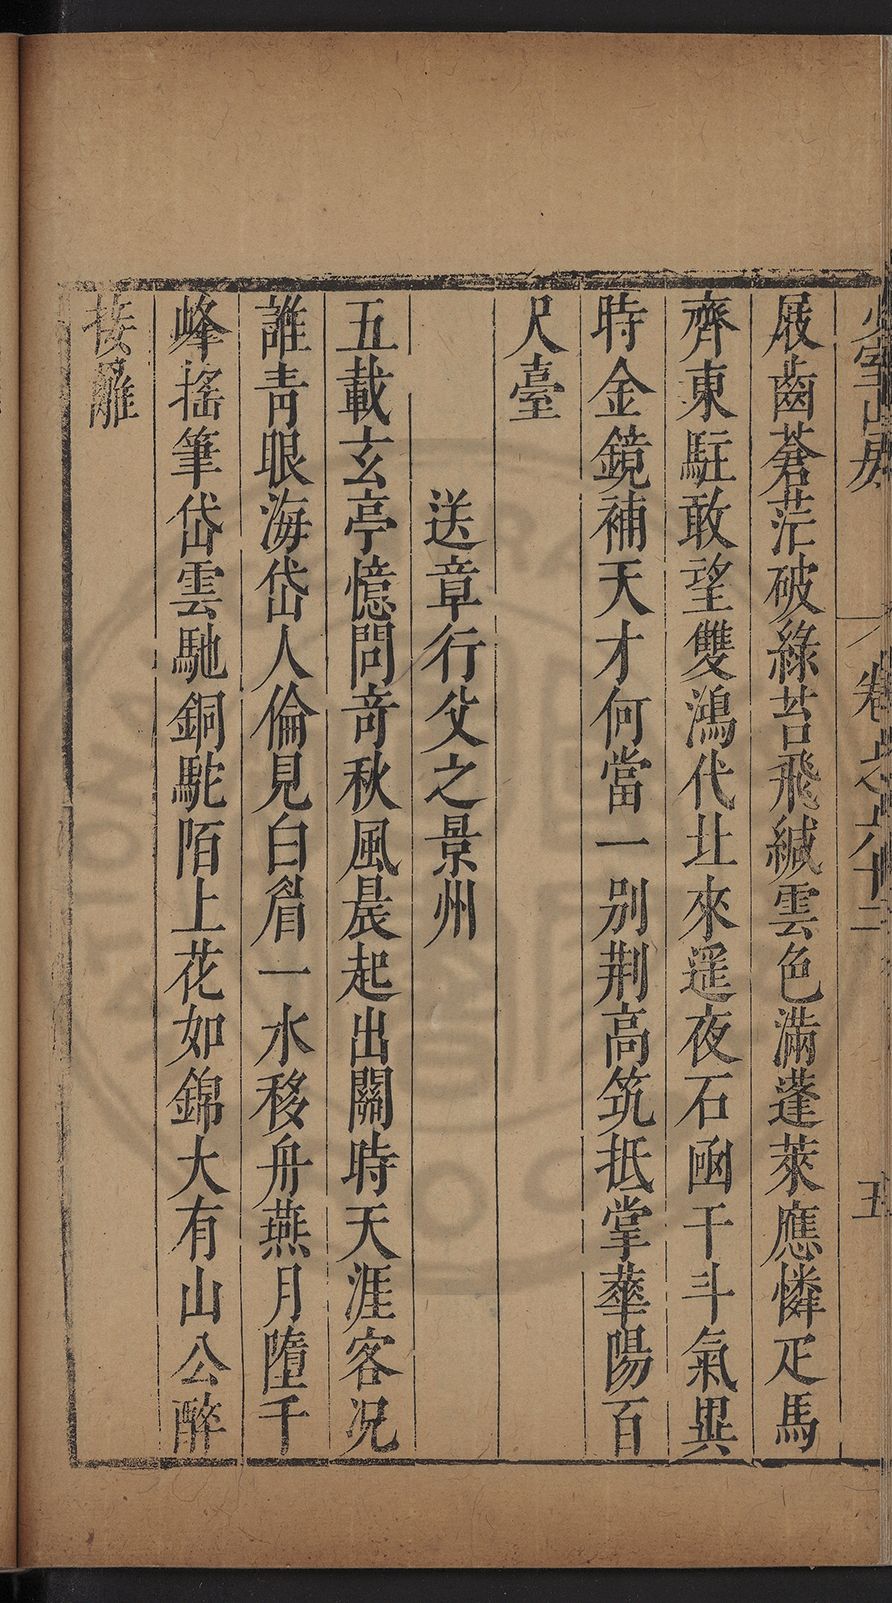 少室山房 卷之六十三 五
屐齒蒼茫破綠苔飛緘雲色滿蓬萊應憐疋馬
齊東駐敢望雙鴻代北來遥夜石函干斗氣異
時金鏡補天才何當一别荆高筑抵掌華陽百
尺臺
送章行父之景州
五載玄亭憶問竒秋風晨起出關時天涯客况
誰靑眼海岱人倫見白眉一水移舟燕月墮千
峰揺筆岱雲馳銅駝陌上花如錦大有山公醉
接䍦